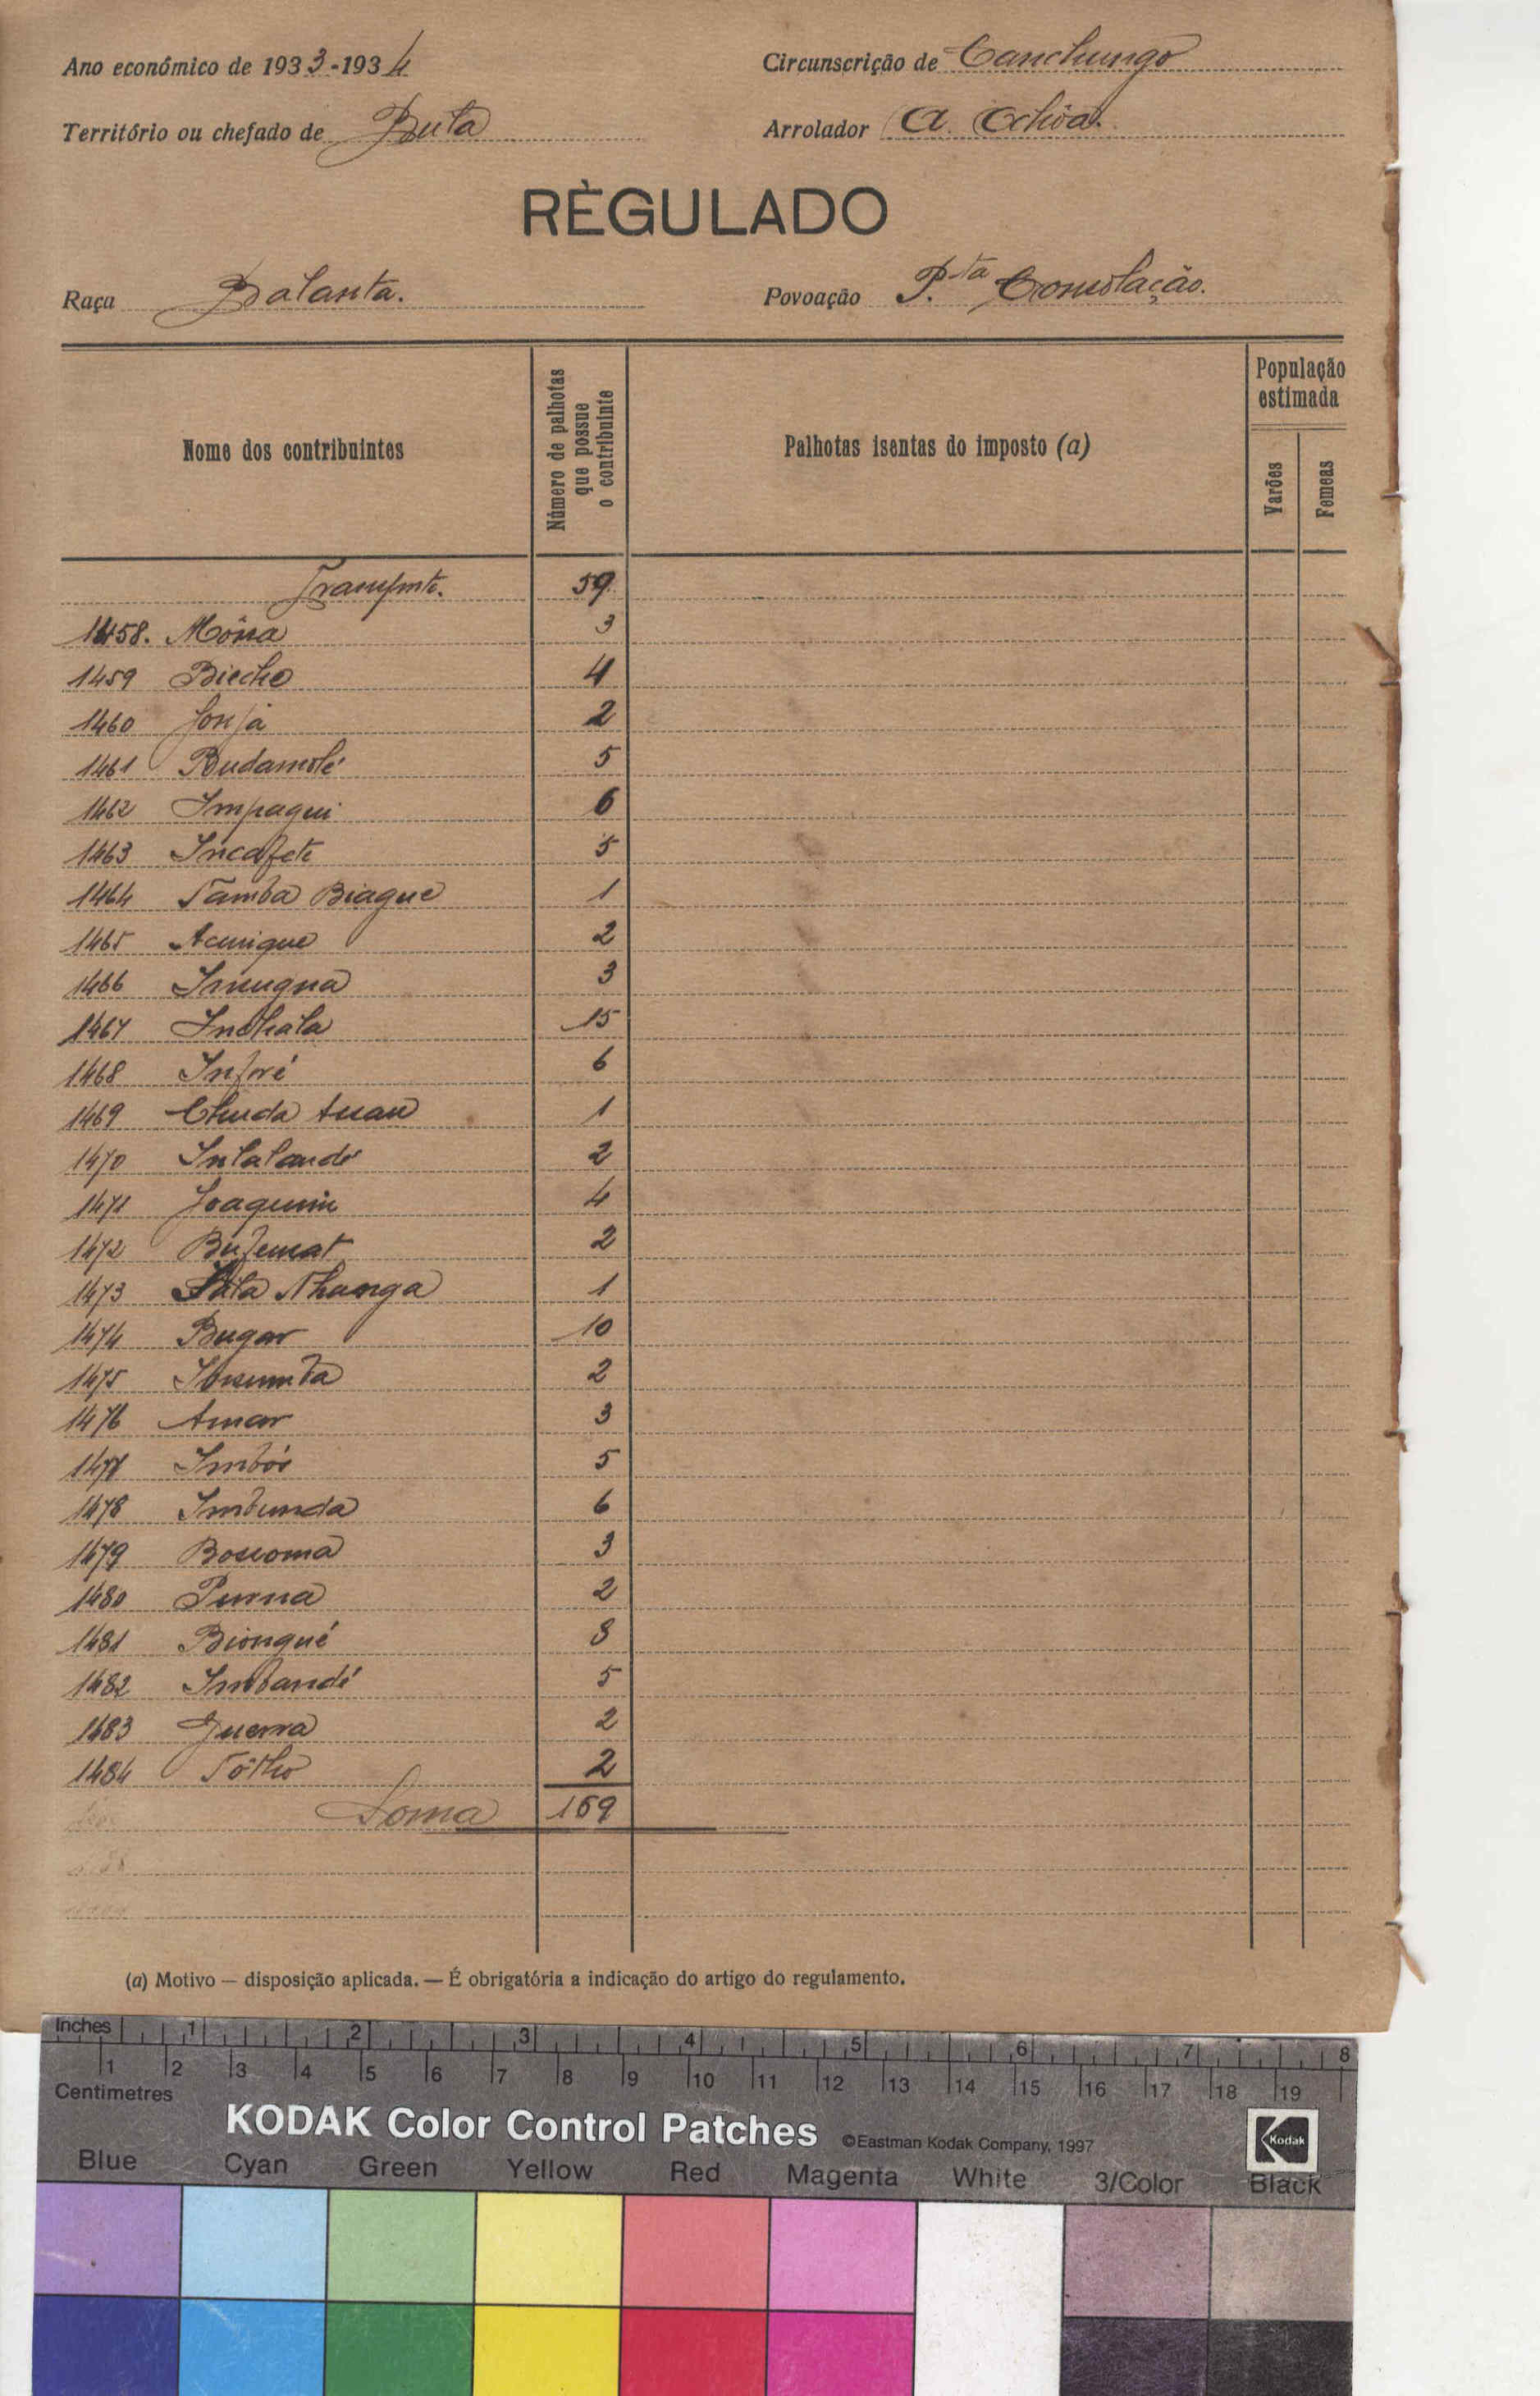 Ano económico de 1933-1934
Circunscrição de Canchungo
Território ou chefado de Bula
Arrolador A. Ochôa.
RÈGULADO
Raça Balanta.
Povoação P.ta Consolação.
Nome dos contribuintes
Número de palhotas que possue o contribuinte
Palhotas isentas do imposto (a)
População estimada
Varões
Femeas
Transpte. 59
1458. Móna 3
1459 Biecho 4
1460 Jonjà 2
1461 Budamolé 5
1462 Impaqui 6
1463 Incafete 5
1464 Tamba Biague 1
1465 Acunique 2
1466 3
1467 Inchala 15
1468 Inforé 6
1469 Chuda 1
1470 Inlalandé 2
1471 Joaquim 4
1472 2
1473 Nhanga 1
1474 Bugar 10
1475 2
1476 Amar 3
1477 Imbói 5
1478 Imbunda 6
1479 3
1480 2
1481 Biongué 8
1482 Imbandé 5
1483 Guerra 2
1484 2
Soma 169
(a) Motivo — disposição aplicada. — É obrigatória a indicação do artigo do regulamento.
Inches 1 2 3 4 5 6 7 8
1 2 3 4 5 6 7 8 9 10 11 12 13 14 15 16 17 18 19
Centimetres
KODAK Color Control Patches ©Eastman Kodak Company, 1997 Kodak
Blue Cyan Green Yellow Red Magenta White 3/Color Black